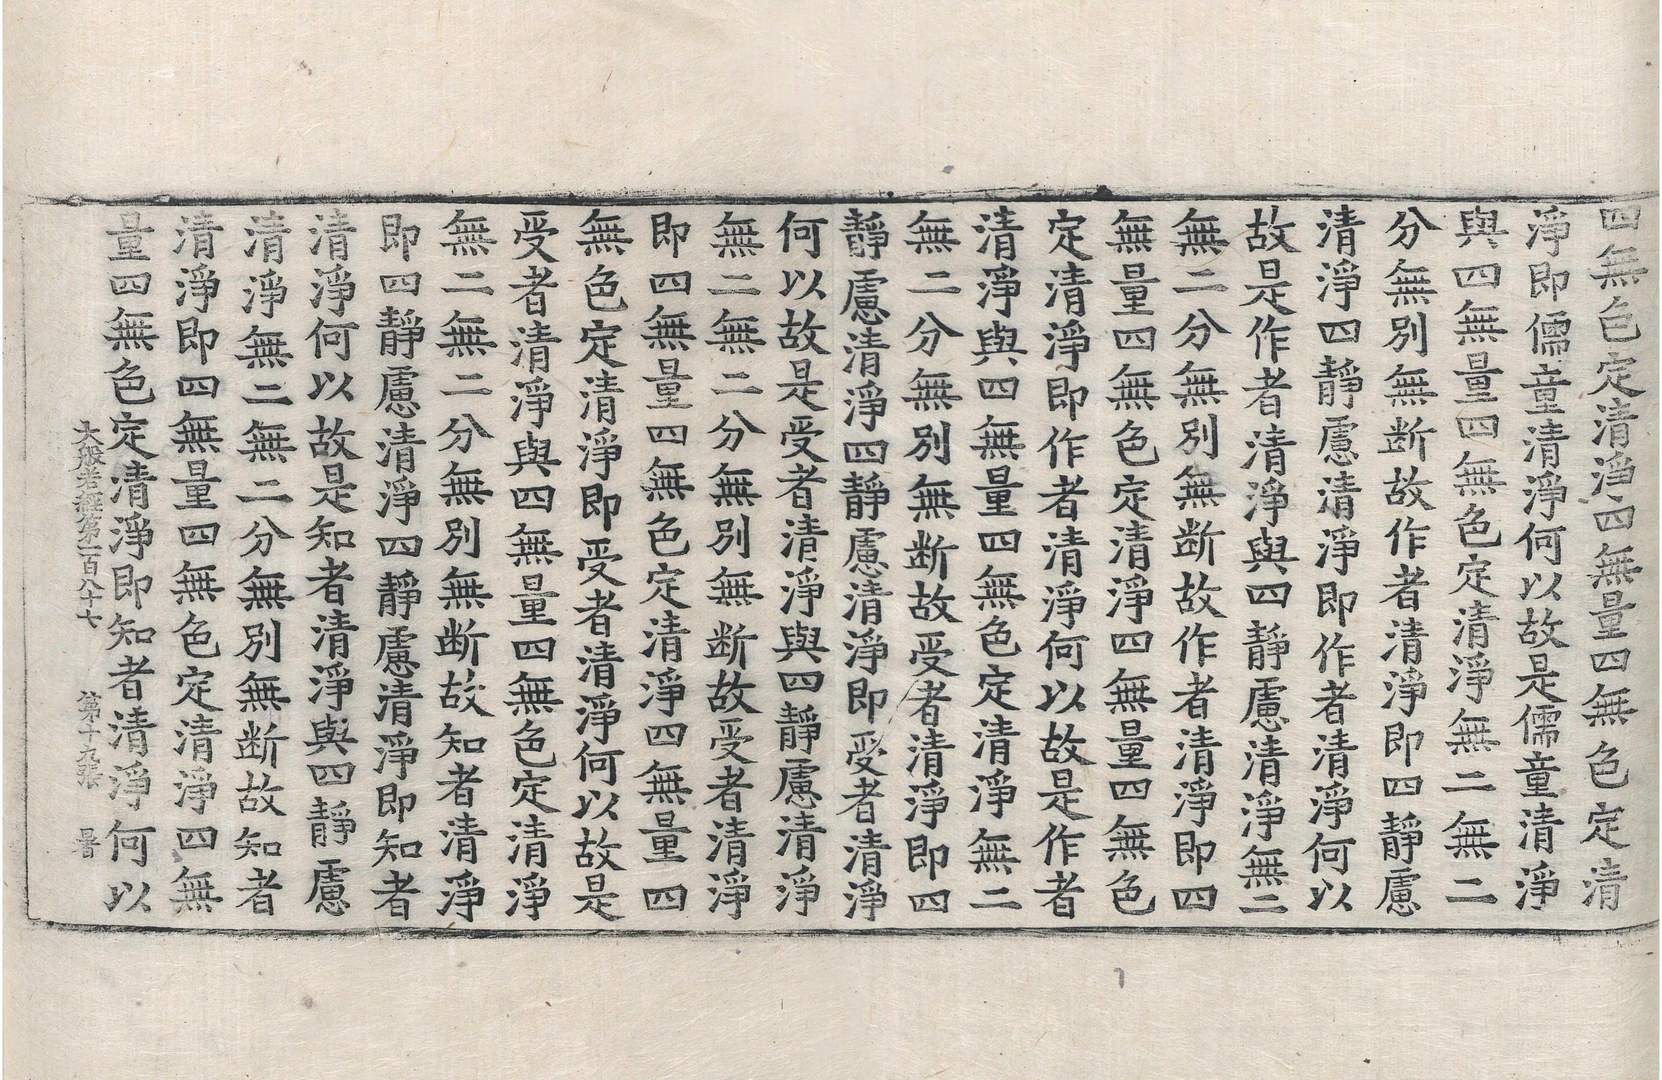 四無色定清淨四無量四無色定清
淨即儒童清淨何以故是儒童清淨
與四無量四無色定清淨無二無二
分無別無断故作者清淨即四靜慮
清淨四靜慮清淨即作者清淨何以
故是作者清淨與四靜慮清淨無二
無二分無別無断故作者清淨即四
無量四無色定清淨四無量四無色
定清淨即作者清淨何以故是作者
清淨與四無量四無色定清淨無二
無二分無別無断故受者清淨即四
靜慮清淨四靜慮清淨即受者清淨
何以故是受者清淨與四靜慮清淨
無二無二分無別無断故受者清淨
即四無量四無色定清淨四無量四
無色定清淨即受者清淨何以故是
受者清淨與四無量四無色定清淨
無二無二分無別無断故知者清淨
即四靜慮清淨四靜慮清淨即知者
清淨何以故是知者清淨與四靜慮
清淨無二無二分無別無断故知者
清淨即四無量四無色定清淨四無
量四無色定清淨即知者清淨何以
大般若經第一百八十七 第十九張 暑